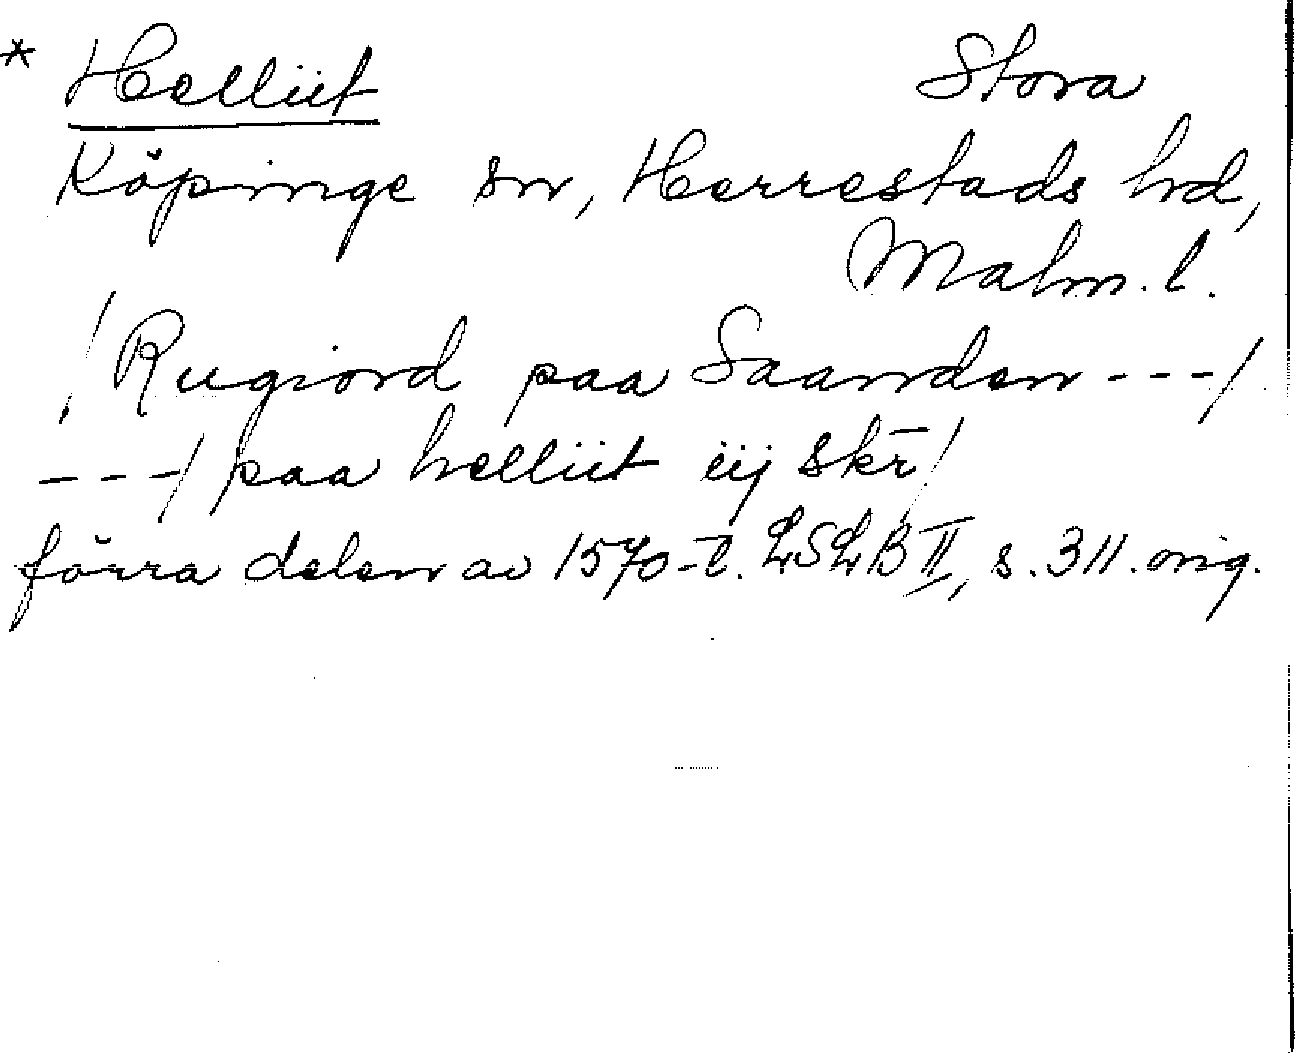 * Helliit Stora
Köpinge sn, Herrestads hd,
Malm. l.
/Rugiord paa Saanden ---/
---/ paa helliit iij skr̄/
förra delen av 1570-t. LSLB II, s. 311. orig.